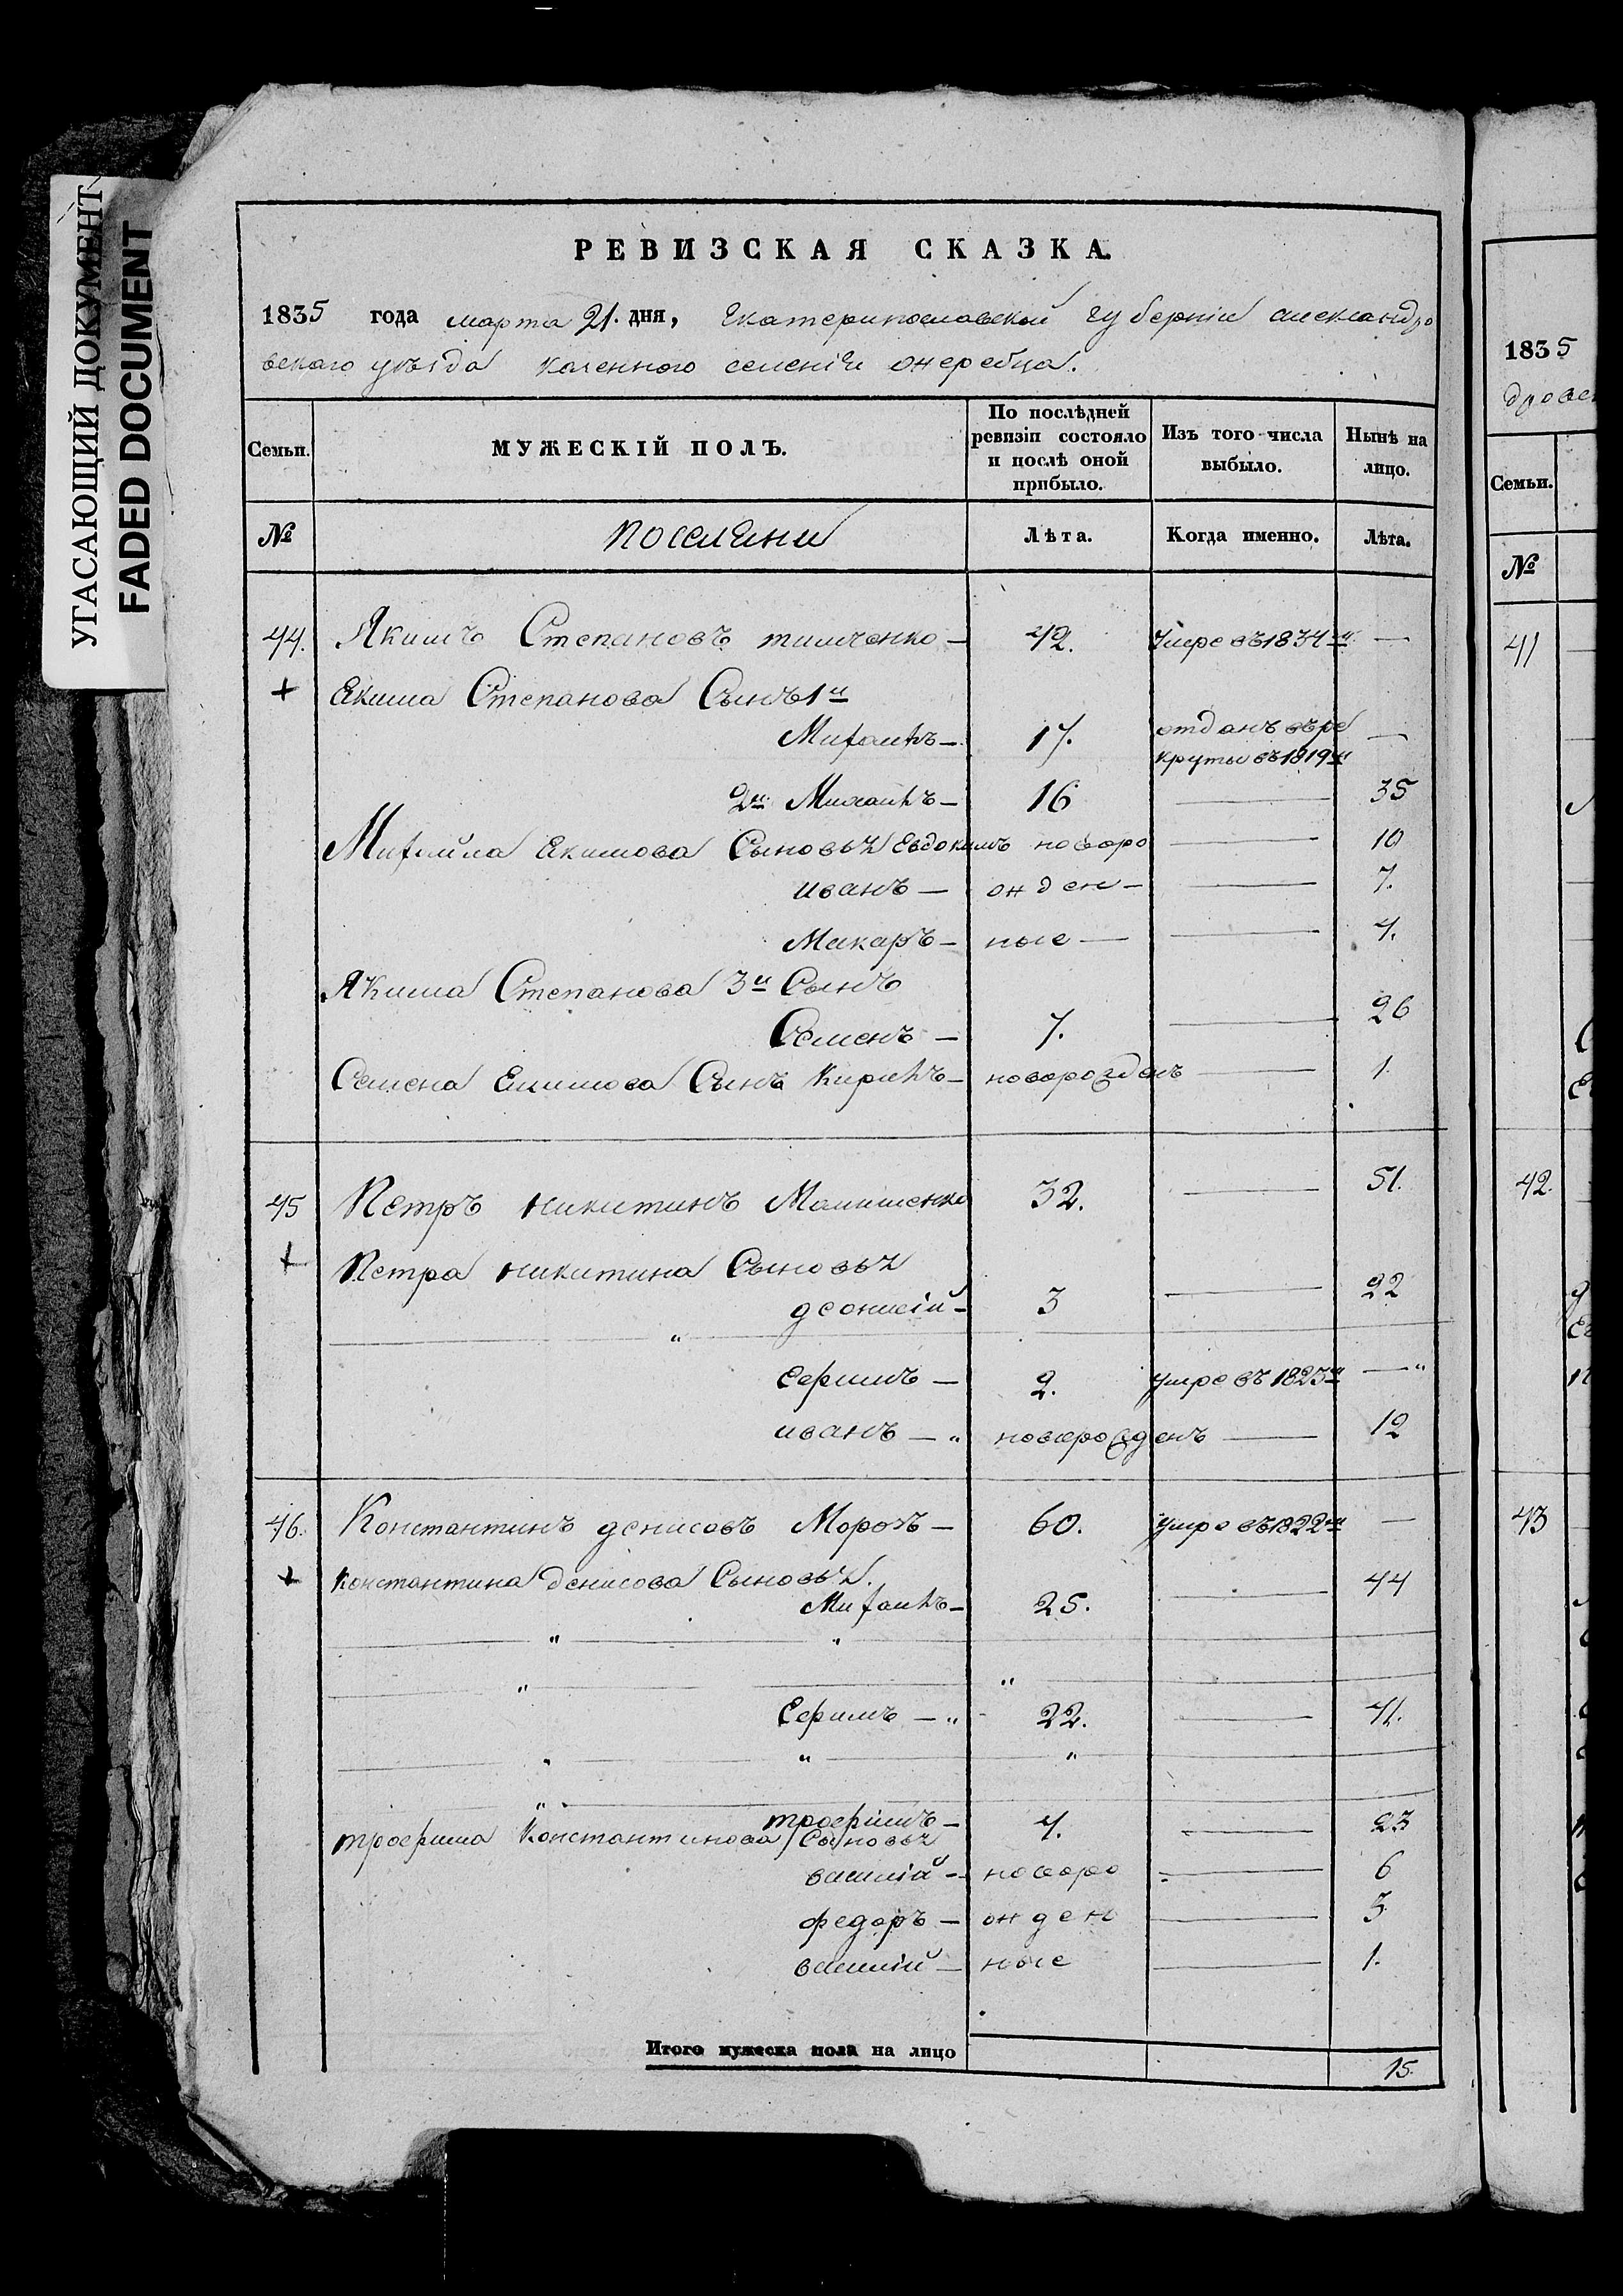 УГАСАЮЩИЙ ДОКУМЕНТ
FADED DOCUMENT
РЕВИЗСКАЯ СКАЗКА.
1835 года марта 21. дня, Екатеринославской губерніи александро
вскаго уѣзда казенного селенія жеребца.
Семьи. МУЖЕСКІЙ ПОЛЪ. По послѣдней ревизіи состояло и послѣ оной прибыло. Изъ того числа выбыло. Нынѣ на лицо.
№ поселяни Лѣта. Когда именно. Лѣта.
44. Якимъ Степановъ тимченко — 42. Умре въ 1834м —
+ Екима Степанова Сынъ 1й
Михаилъ — 17. отданъ въ ре
круты въ 1819м —
2й Михаилъ — 16 — 35
Михайла Екимова Сыновья Евдокимъ новоро — 10
иванъ — жден — — 7.
Макаръ — ные — — 4.
Якима Степанова 3й Сынъ
Семенъ — 7. — 26
Семена Екимова Сынъ Кирилъ — новорожденъ — 1.
45 Петръ никитинъ 32. — 51.
+ Петра никитина Сыновья
деонисій — 3 — 22
"
Ефимъ — 2. умре въ 1823м — "
иванъ — " новорожденъ — 12
46. Константинъ денисовъ Морозъ — 60. умре въ 1822м —
+ Константина денисова Сыновья.
Михаилъ — 25. — 44
" "
" "
Ефимъ — " 22. — 41.
" " "
"
трофимъ — 4. — 23
трофима Константинова / Сыновья
василій — новоро — 6
федоръ — жден — 3
василій — ные — 1.
Итого мужеска пола на лицо 15.
1835
Семьи.
№
41
42.
43